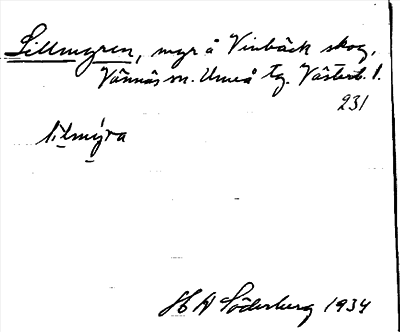 Lillmyren, myr å Vinbäck skog,
Vännäs sn. Umeå tg. Västerb. l.
231
lìlmýra
H A Söderberg 1934